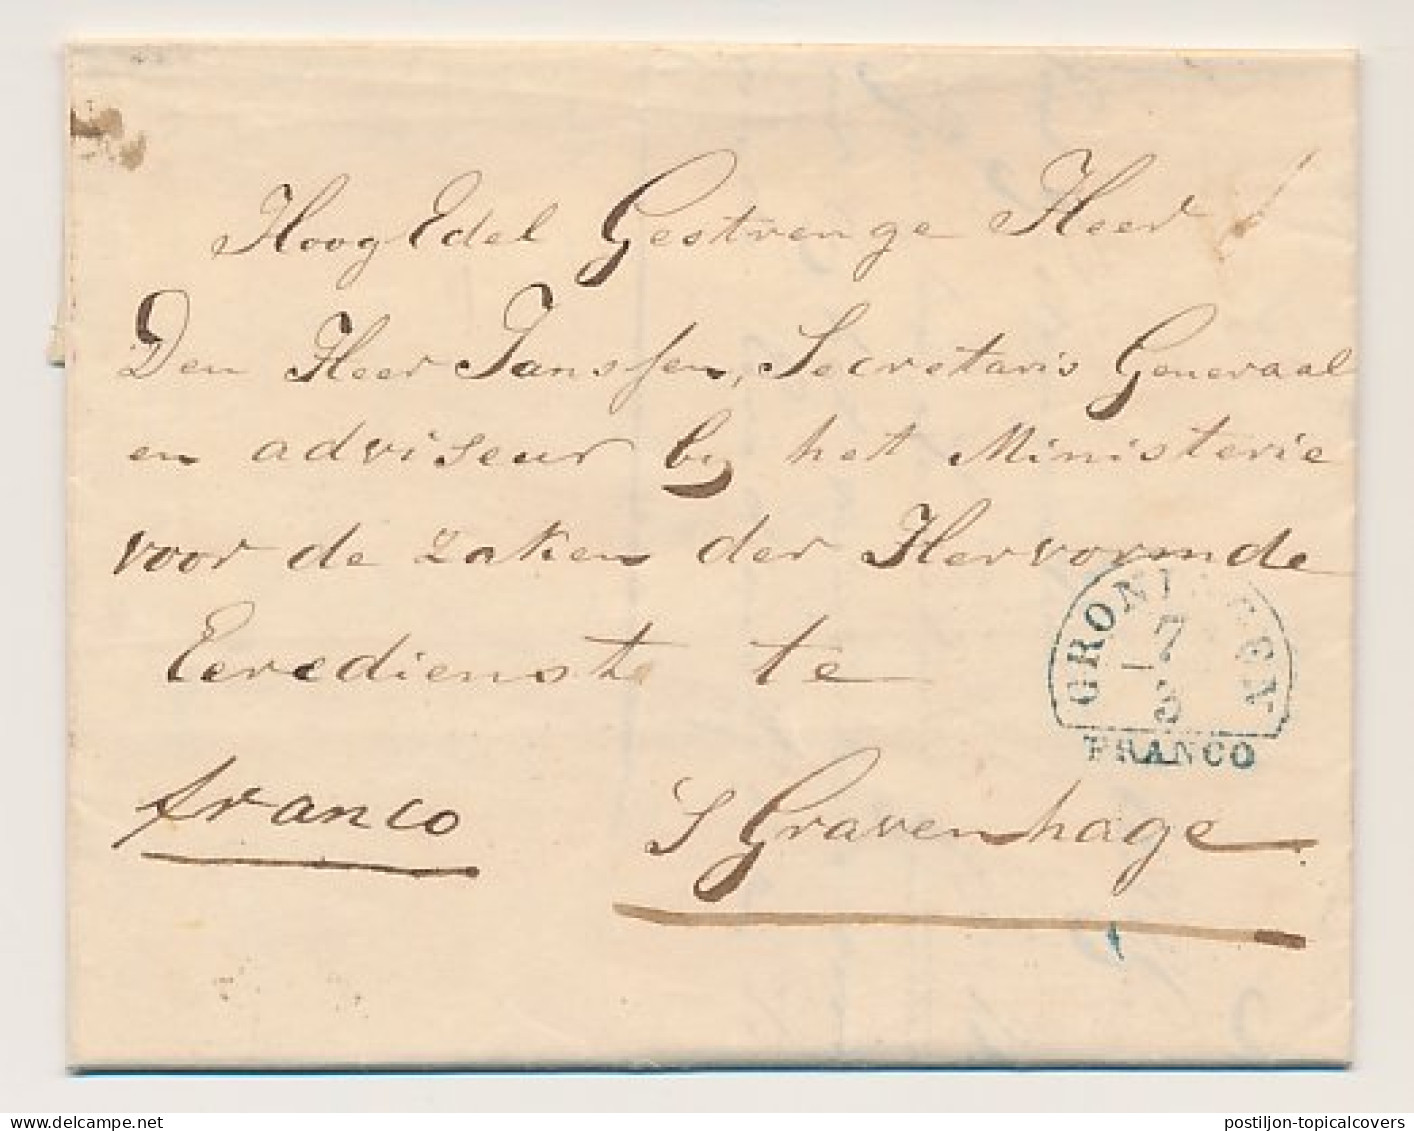 HoogEdel Gestrenge Heer!
Den Heer Janssen, Secretaris Generaal
en adviseur by het Ministerie
voor de zaken der Hervormde
Eeredienste te
GRONINGEN
7
5
FRANCO
franco
S Gravenhage.
delcampe.net
postiljon-topicalcovers